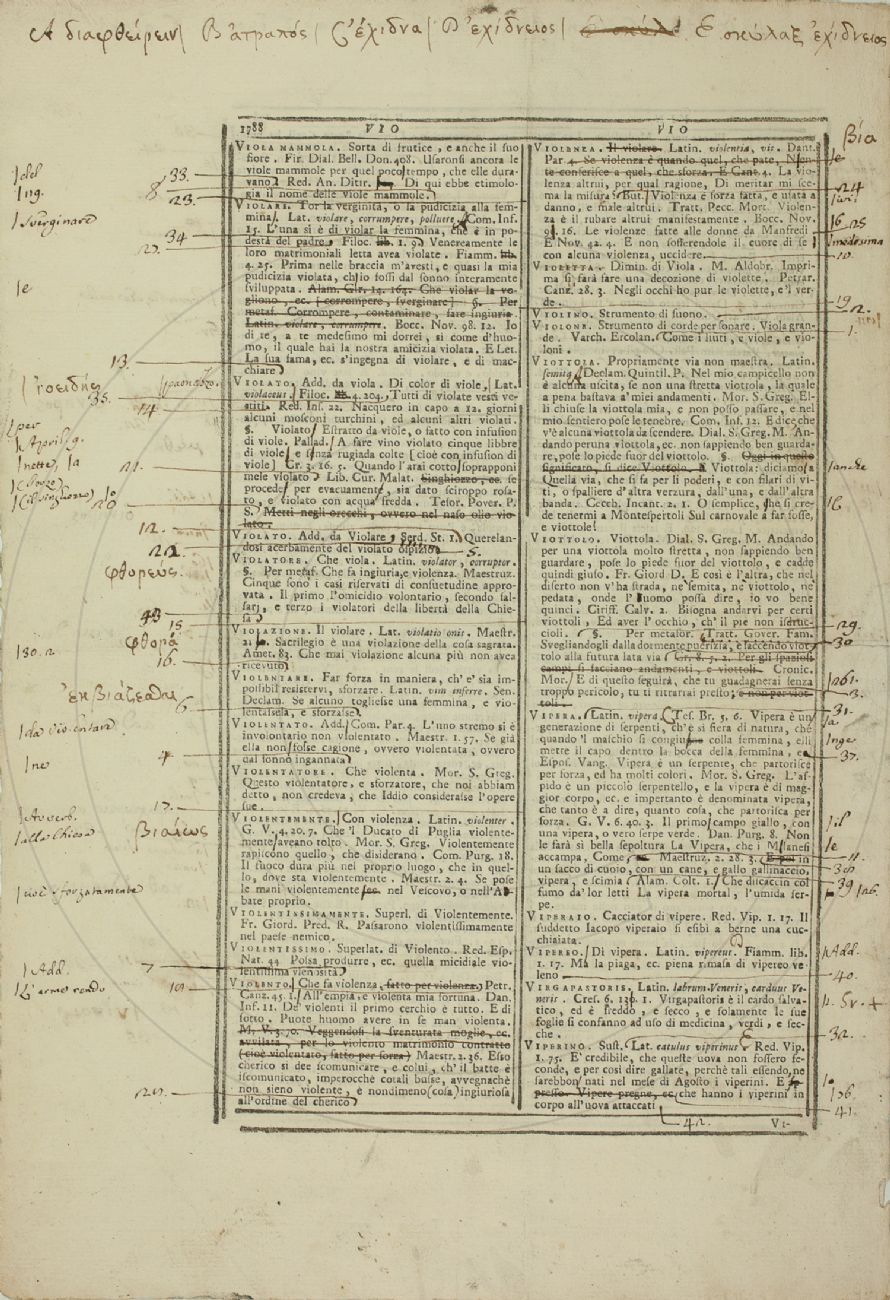 A διαφθείρειν / B ἀτραπός / C ἔχιδνα / D ἐχίδνειος / E σκύλαξ ἐχίδνειος
1788 VIO VIO
VIOLA MAMMOLA. Sorta di frutice, e anche il suo
fiore. Fir. Dial. Bell. Don. 408. Usaronsi ancora le
viole mammole per quel poco tempo, che elle dura-
vano. Red. An. Ditir. Di qui ebbe etimolo-
gia il nome delle viole mammole.
VIOLARE. Tor la verginità, o la pudicizia alla fem-
mina. Lat. violare, corrumpere, polluere. Com. Inf.
15. L'una si è di violar la femmina, che è in po-
destà del padre. Filoc. lib. 1. 9. Venereamente le
loro matrimoniali letta avea violate. Fiamm. lib.
4. 25. Prima nelle braccia m'avesti, e quasi la mia
pudicizia violata, ch'io fossi dal sonno interamente
sviluppata. Alam. Gir. 14. 163. Che violar la vo-
gliono, ec. [corrompere, sverginare] §. Per
metaf. Corrompere, contaminare, fare ingiuria.
Latin. violare, corrumpere. Bocc. Nov. 98. 12. Io
di te, a te medesimo mi dorrei, sì come d'huo-
mo, il quale hai la nostra amicizia violata. E Let.
La sua fama, ec. s'ingegna di violare, e di mac-
chiare.
VIOLATO. Add. da viola. Di color di viole. Lat.
violaceus. Filoc. lib. 4. 204. Tutti di violate vesti ve-
stiti. Red. Inf. 22. Nacquero in capo a 12. giorni
alcuni mosconi turchini, ed alcuni altri violati.
§. Violato / Estratto da viole, o fatto con infusion
di viole. Pallad. A fare vino violato cinque libbre
di viole, e senza rugiada colte [cioè con infusion di
viole] Cr. 3. 16. 5. Quando l'arai cotto, soprapponi
mele violato. Lib. Cur. Malat. Singhiozzo, ec. se
procede per evacuamento, sia dato sciroppo rosa-
to, e violato con acqua fredda. Tesor. Pover. P.
S. Metti negli orecchi, ovvero nel naso olio vio-
lato.
VIOLATO. Add. da Violare, Serd. St. 1. Querelan-
dosi acerbamente del violato ospizio.
VIOLATORE. Che viola. Latin. violator, corruptor.
§. Per metaf. Che fa ingiuria, e violenza. Maestruz.
Cinque sono i casi riservati di consuetudine appro-
vata. Il primo l'omicidio volontario, secondo fal-
sarj, e terzo i violatori della libertà della Chie-
sa.
VIOLAZIONE. Il violare. Lat. violatio onis. Maestr.
2. Sacrilegio è una violazione della cosa sagrata.
Amet. 83. Che mai violazione alcuna più non avea
ricevuto.
VIOLENZARE. Far forza in maniera, ch'e' sia im-
possibil resistervi, sforzare. Latin. vim inferre. Sen.
Declam. Se alcuno togliesse una femmina, e vio-
lentassela, e sforzasse.
VIOLENTATO. Add. Com. Par. 4. L'uno stremo si è
involontario non violentato. Maestr. 1. 57. Se già
ella non fosse cagione, ovvero violentata, ovvero
dal sonno ingannata.
VIOLENTATORE. Che violenta. Mor. S. Greg.
Questo violentatore, e sforzatore, che noi abbiam
detto, non credeva, che Iddio considerasse l'opere
sue.
VIOLENTEMENTE. Con violenza. Latin. violenter.
G. V. 4. 20. 7. Che 'l Ducato di Puglia violente-
mente aveano tolto. Mor. S. Greg. Violentemente
rapiscono quello, che disiderano. Com. Purg. 18.
Il fuoco dura più nel proprio luogo, che in quel-
lo, dove sta violentemente. Maestr. 2. 4. Se pose
le mani violentemente nel Vescovo, o nell'A-
bate proprio.
VIOLENTISSIMAMENTE. Superl. di Violentemente.
Fr. Giord. Pred. R. Passarono violentissimamente
nel paese nemico.
VIOLENTISSIMO. Superlat. di Violento. Red. Esp.
Nat. 44 Possa produrre, ec. quella micidiale vio-
lentissima velenosità.
VIOLENTO. Che fa violenza, fatto per violenza. Petr.
Canz. 45. 1. All'empia, e violenta mia fortuna. Dan.
Inf. 11. De' violenti il primo cerchio è tutto. E di
sotto. Puote huomo avere in se man violenta.
M. V. 3. 70. Veggendosi la sventurata moglie, ec.
avvilata, per lo violento matrimonio contratto
(cioè violentato, fatto per forza) Maestr. 2. 36. Esso
cherico si dee scomunicare, e colui, ch'il batte è
iscomunicato, imperocchè cotali busse, avvegnachè
non sieno violente, è nondimeno (cosa) ingiuriosa
all'ordine del cherico.
VIOLENZA. Il violare. Latin. violentia, vis. Dant.
Par. 4. Se violenza è quando quel, che pate, Nien-
te conferisce a quel, che sforza. E Cant. 4. La vio-
lenza altrui, per qual ragione, Di meritar mi sce-
ma la misura. But. Violenza è forza fatta, e usata a
danno, e male altrui. Tratt. Pecc. Mort. Violen-
za è il rubare altrui manifestamente. Bocc. Nov.
98. 16. Le violenze fatte alle donne da Manfredi.
E Nov. 42. 4. E non sofferendole il cuore di se
con alcuna violenza, uccidere.
VIOLETTA. Dimin. di Viola. M. Aldobr. Impri-
ma si farà fare una decozione di violette. Petrar.
Canz. 28. 3. Negli occhi ho pur le violette, e 'l ver-
de.
VIOLINO. Strumento di suono.
VIOLONE. Strumento di corde per sonare. Viola gran-
de. Varch. Ercolan. Come i liuti, e viole, e vio-
loni.
VIOTTOLA. Propriamente via non maestra. Latin.
semita. Declam. Quintil. P. Nel mio campicello non
è alcuna uscita, se non una stretta viottola, la quale
a pena bastava a' miei andamenti. Mor. S. Greg. El-
li chiuse la viottola mia, e non posso passare, e nel
mio sentiero pose le tenebre. Com. Inf. 12. E dice che
v'è alcuna viottola da scendere. Dial. S. Greg. M. An-
dando per una viottola, ec. non sappiendo ben guarda-
re, pose lo piede fuor del viottolo. §. Oggi in questo
significato, si dice Viottolo. Viottola: diciamo a
Quella via, che si fa per li poderi, e con filari di vi-
ti, o spalliere d'altra verzura, dall'una, e dall'altra
banda. Cecch. Incant. 2. 1. O semplice, che si cre-
de tenermi a Montespertoli Sul carnovale a far fosse,
e viottole!
VIOTTOLO. Viottola. Dial. S. Greg. M. Andando
per una viottola molto stretta, non sappiendo ben
guardare, pose lo piede fuor del viottolo, e cadde
quindi giuso. Fr. Giord D. E così è l'altra, che nel
diserto non v'ha strada, ne' semita, ne' viottolo, ne'
pedata, onde l'huomo possa dire, io vo bene
quinci. Ciriff. Calv. 2. Bisogna andarvi per certi
viottoli, Ed aver l'occhio, ch'il piè non isdruc-
cioli. §. Per metafor. Tratt. Gover. Fam.
Svegliandogli dalla dormente puerizia, e faccendo viot-
tolo alla futura lata via. Cr. 8. 5. 2. Per gli spazioli
campi si facciano andamenti, e viottoli. Cronic.
Mor. E di questo seguirà, che tu guadagnerai senza
troppo pericolo, tu ti ritrarrai presto, e non per viot-
toli.
VIPERA. Latin. vipera. Tes. Br. 5. 6. Vipera è un
generazione di serpenti, ch'è sì fiera di natura, che
quando 'l maschio si congiugne colla femmina, elli
metre il capo dentro la bocca della femmina, e
Espos. Vang. Vipera è un serpente, che partorisce
per forza, ed ha molti colori. Mor. S. Greg. L'as-
pido è un piccolo serpentello, e la vipera è di mag-
gior corpo, ec. e impertanto è denominata vipera,
che tanto è a dire, quanto cosa, che partorisca per
forza. G. V. 6. 40. 3. Il primo campo giallo, con
una vipera, o vero serpe verde. Dan. Purg. 8. Non
le farà sì bella sepoltura La Vipera, che i Milanesi
accampa, Come Maestruz. 2. 28. 3. E poi in
un sacco di cuoio, con un cane, e gallo gallinaccio,
vipera, e scimia. Alam. Colt. 1. Che discaccin col
fumo da' lor letti La vipera mortal, l'umida ser-
pe.
VIPERAIO. Cacciator di vipere. Red. Vip. 1. 17. Il
suddetto Iacopo viperaio si esibì a berne una cuc-
chiaiata.
VIPEREO. Di vipera. Latin. vipereus. Fiamm. lib.
1. 17. Ma la piaga, ec. piena rimasa di vipereo ve-
leno
VIRGAPASTORIS. Latin. labrum Veneris, carduus Ve-
neris. Cres. 6. 130. 1. Virgapastoris è il cardo salva-
tico, ed è freddo, e secco, e solamente le sue
foglie si confanno ad uso di medicina, verdi, e sec-
che.
VIPERINO. Sust. Lat. catulus viperinus. Red. Vip.
1. 75. E' credibile, che queste uova non fossero fe-
conde, e per così dire gallate, perchè tali essendo, ne
sarebbon nati nel mese di Agosto i viperini. E
presso. Vipere pregne, ec. che hanno i viperini in
corpo all'uova attaccati
VI-
del
Ing.
Sverginare
φθορεύς
φθορά
ἐκβιάζεσθαι
da violentare
ne
Avverb.
alla Chiesa
βιαίως
cioè sforzatamente
Add.
βία
medesima
anche
Add.